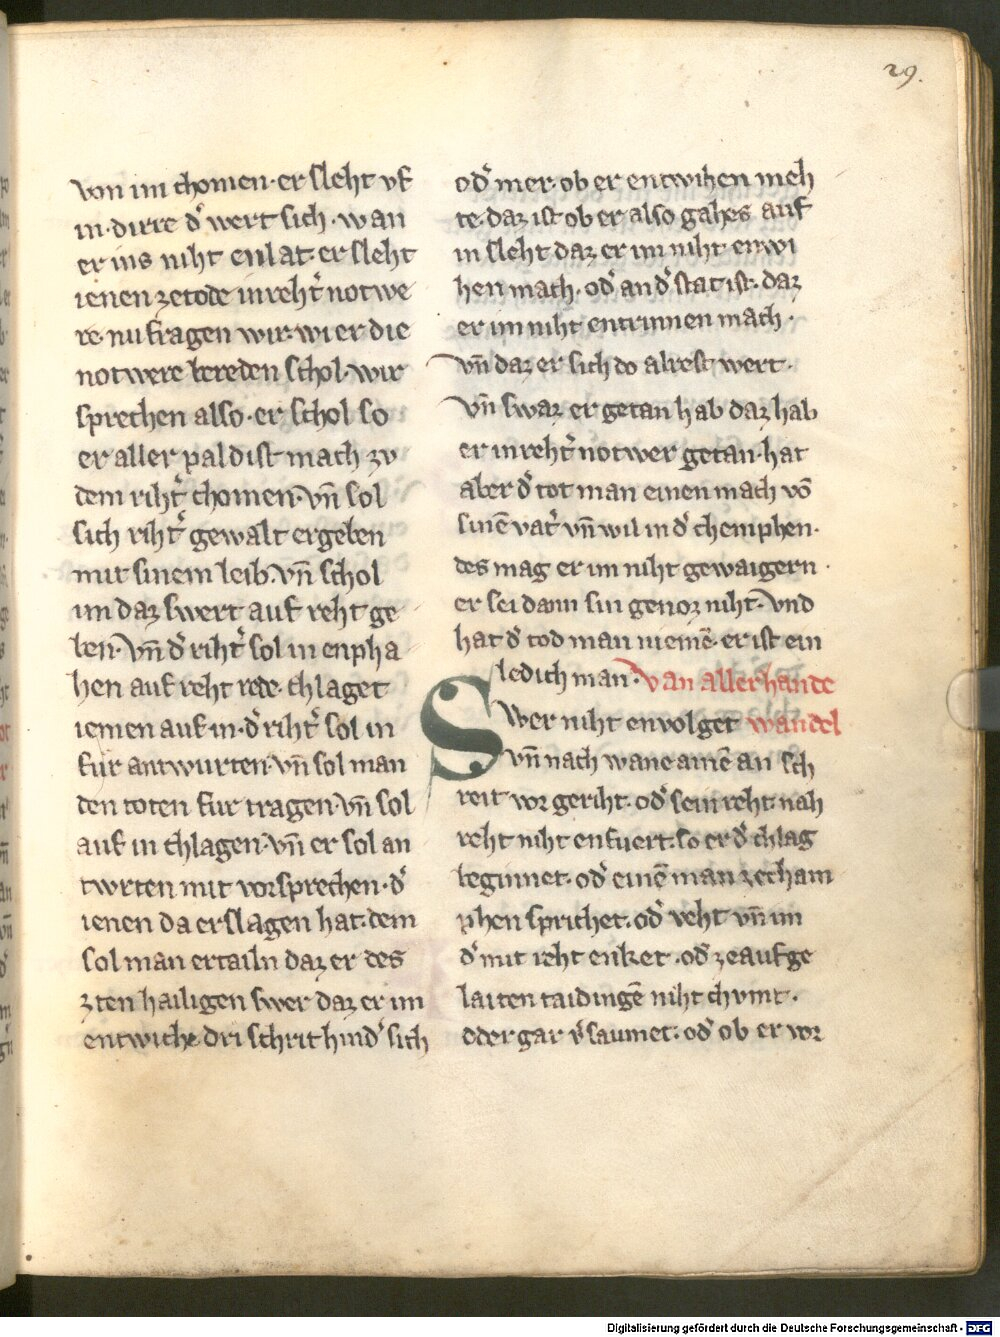 29.
von im chomen·er sleht vf
in·dirre d͛ wert sich·wan
er ins niht enlat·er sleht
ienen zetode inreht͛ notwe
re·nu fragen wir·wi er die
notwere bereden schol·wir
sprechen also·er schol so
er aller paldist mach zv
dem riht͛ chomen·vn̄ sol
sich riht͛ gewalt ergeben
mit sinem leib·vn̄ schol
im daz swert auf reht ge
ben·vn̄ d͛ riht͛ sol in enpha
hen auf reht rede·chlaget
iemen auf in·d͛ riht͛ sol in
fur antwurten·vn̄ sol man
den toten fur tragen·vn̄ sol
auf in chlagen·vn̄ er sol an
twrten mit vorsprechen·d͛
ienen da erslagen hat·dem
sol man ertailn daz er des
zten hailigen swer daz er im
entwiche dri schrit hind͛ sich
od͛ mer·ob er entwihen meh
te·daz ist ob er also gahes auf
in sleht daz er im niht entwi
hen mach·od͛ an d͛ stat ist·daz
er im niht entrinnen mach·
vn̄ daz er sich do alrest wert·
vn̄ swaz er getan hab daz hab
er inreht͛ notwer getan·hat
aber d͛ tot man einen mach vō
sinē vat͛ vn̄ wil in d͛ chemphen·
des mag er im niht gewaigern·
er sei dann sin genoz niht·vnd
hat d͛ tod man niemē·er ist ein
ledich man·van allerhande
Swer niht envolget wandel
vn̄ nach wane ainē an sch
reit vor geriht·od͛ sein reht nah
reht niht enfuert·so er d͛ chlag
beginnet·od͛ einē man zecham
phen sprichet·od͛ veht vn̄ im
d͛ mit reht enket·od͛ zeaufge
laiten taidingē niht chvmt·
oder gar v͛saumet·od͛ ob er vor
Digitalisierung gefördert durch die Deutsche Forschungsgemeinschaft - DFG